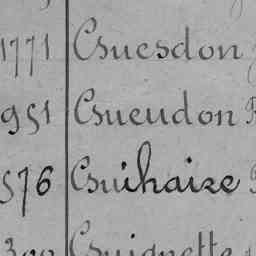 1771 Guesdon
951 Gueudon
576 Guihaire
Guignette